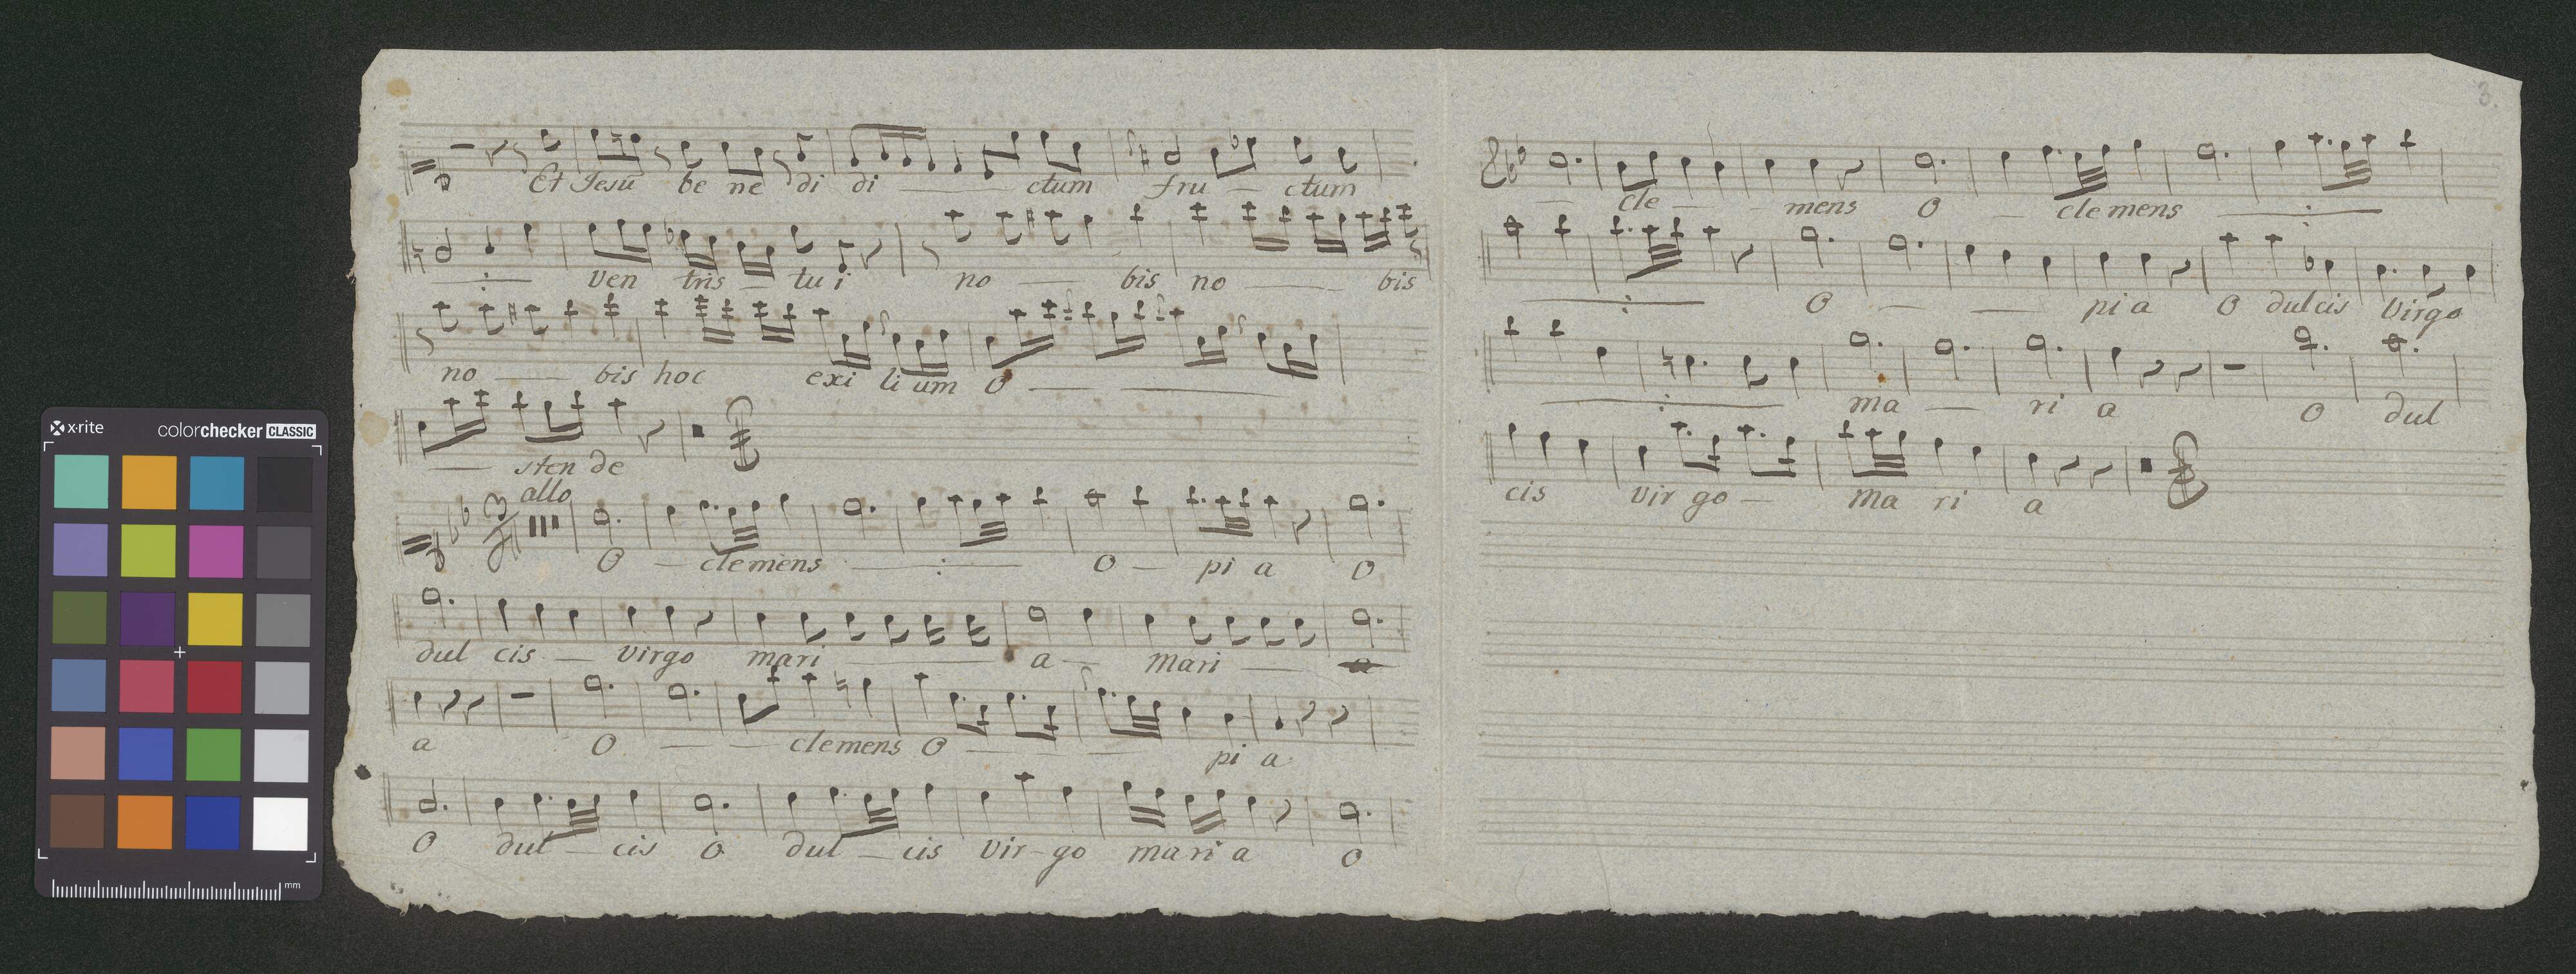 x·rite colorchecker CLASSIC
mm
Et Jesū be ne di di — ctum fru — ctum
ven tris — tu i no — bis no — bis
no — bis hoc exi li um O —
— sten de
allo
O — clemens — : — O — pi a O
dul cis — virgo mari — a — Mari — a
a O — clemens O — pi a
O dul — cis O dul — cis vir - go ma ri a O
3.
— cle — mens O — cle mens — : —
— : — O — — pi a O dulcis Virgo
— : — ma — ri a O dul
cis vir go — Ma ri a